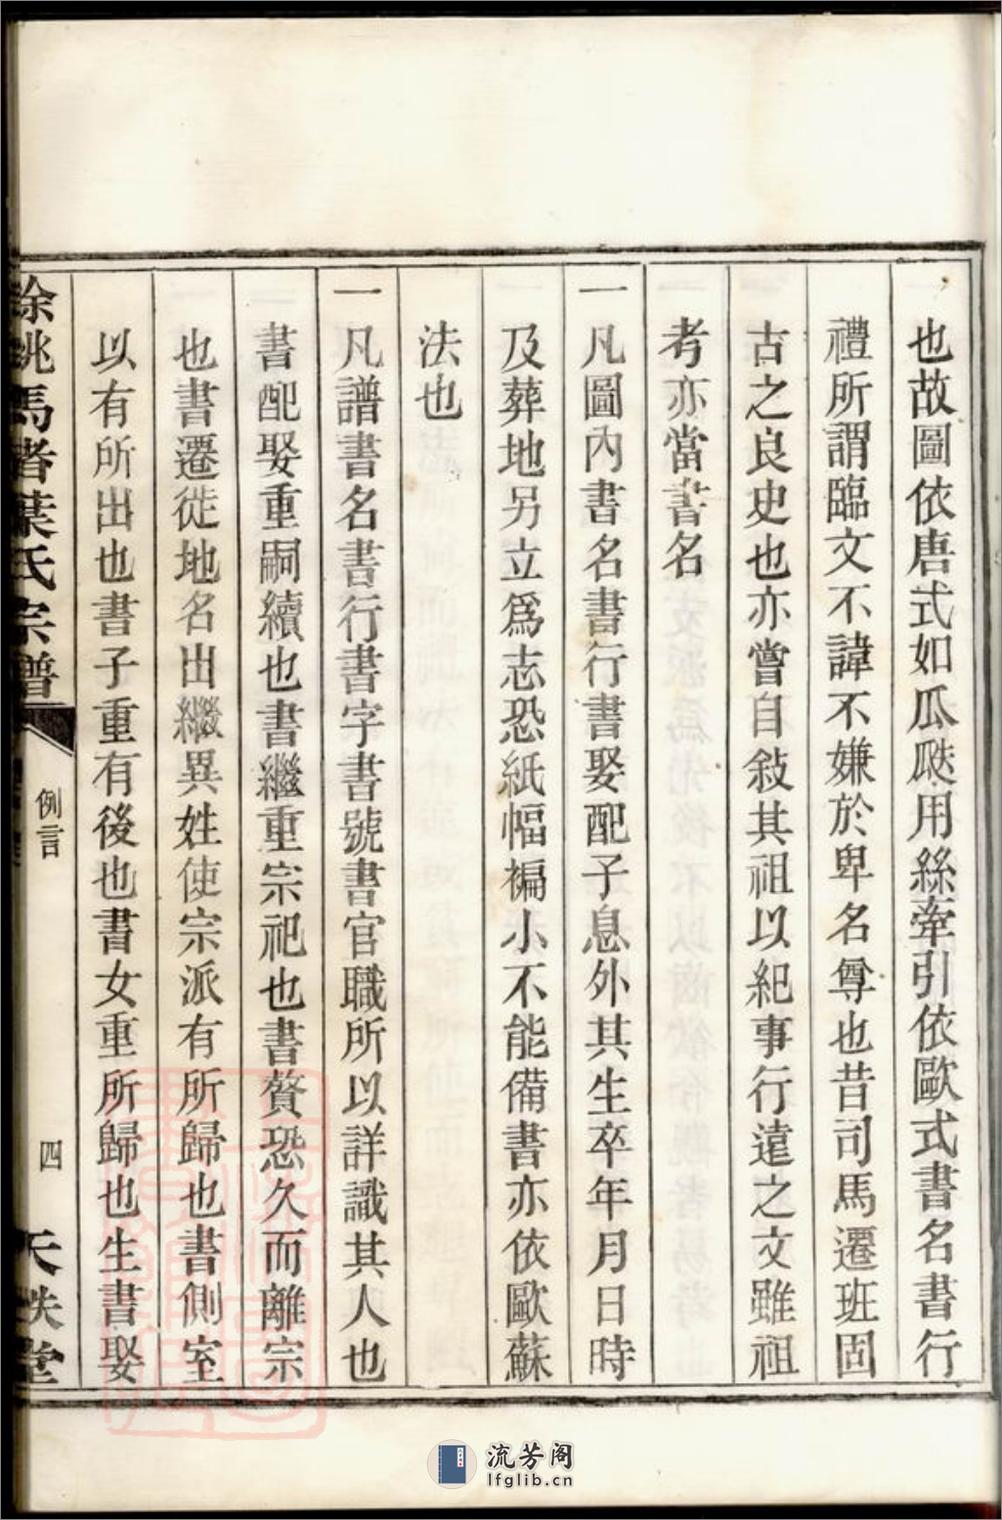 也故圖依唐式如瓜瓞用絲牽引依歐式書名書行
禮所謂臨文不諱不嫌於卑名尊也昔司馬遷班固
古之良史也亦嘗自敍其祖以紀事行遠之文雖祖
考亦當書名
一凡圖內書名書行書娶配子息外其生卒年月日時
及葬地另立爲志恐紙幅褊小不能備書亦依歐蘇
法也
一凡譜書名書行書字書號書官職所以詳識其人也
書配娶重嗣續也書繼重宗祀也書贅恐久而離宗
也書遷徙地名出繼異姓使宗派有所歸也書側室
以有所出也書子重有後也書女重所歸也生書娶
餘姚馬渚葉氏宗譜
例言
四
天敘堂
流芳阁
lfglib.cn